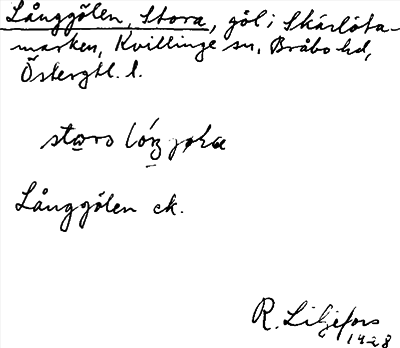 Långgölen, Stora, göl i Skärlöta-
marken, Kvillinge sn, Bråbo hd,
Östergtl. l.
stora
Långgölen ek.
R. Liljefors
1928